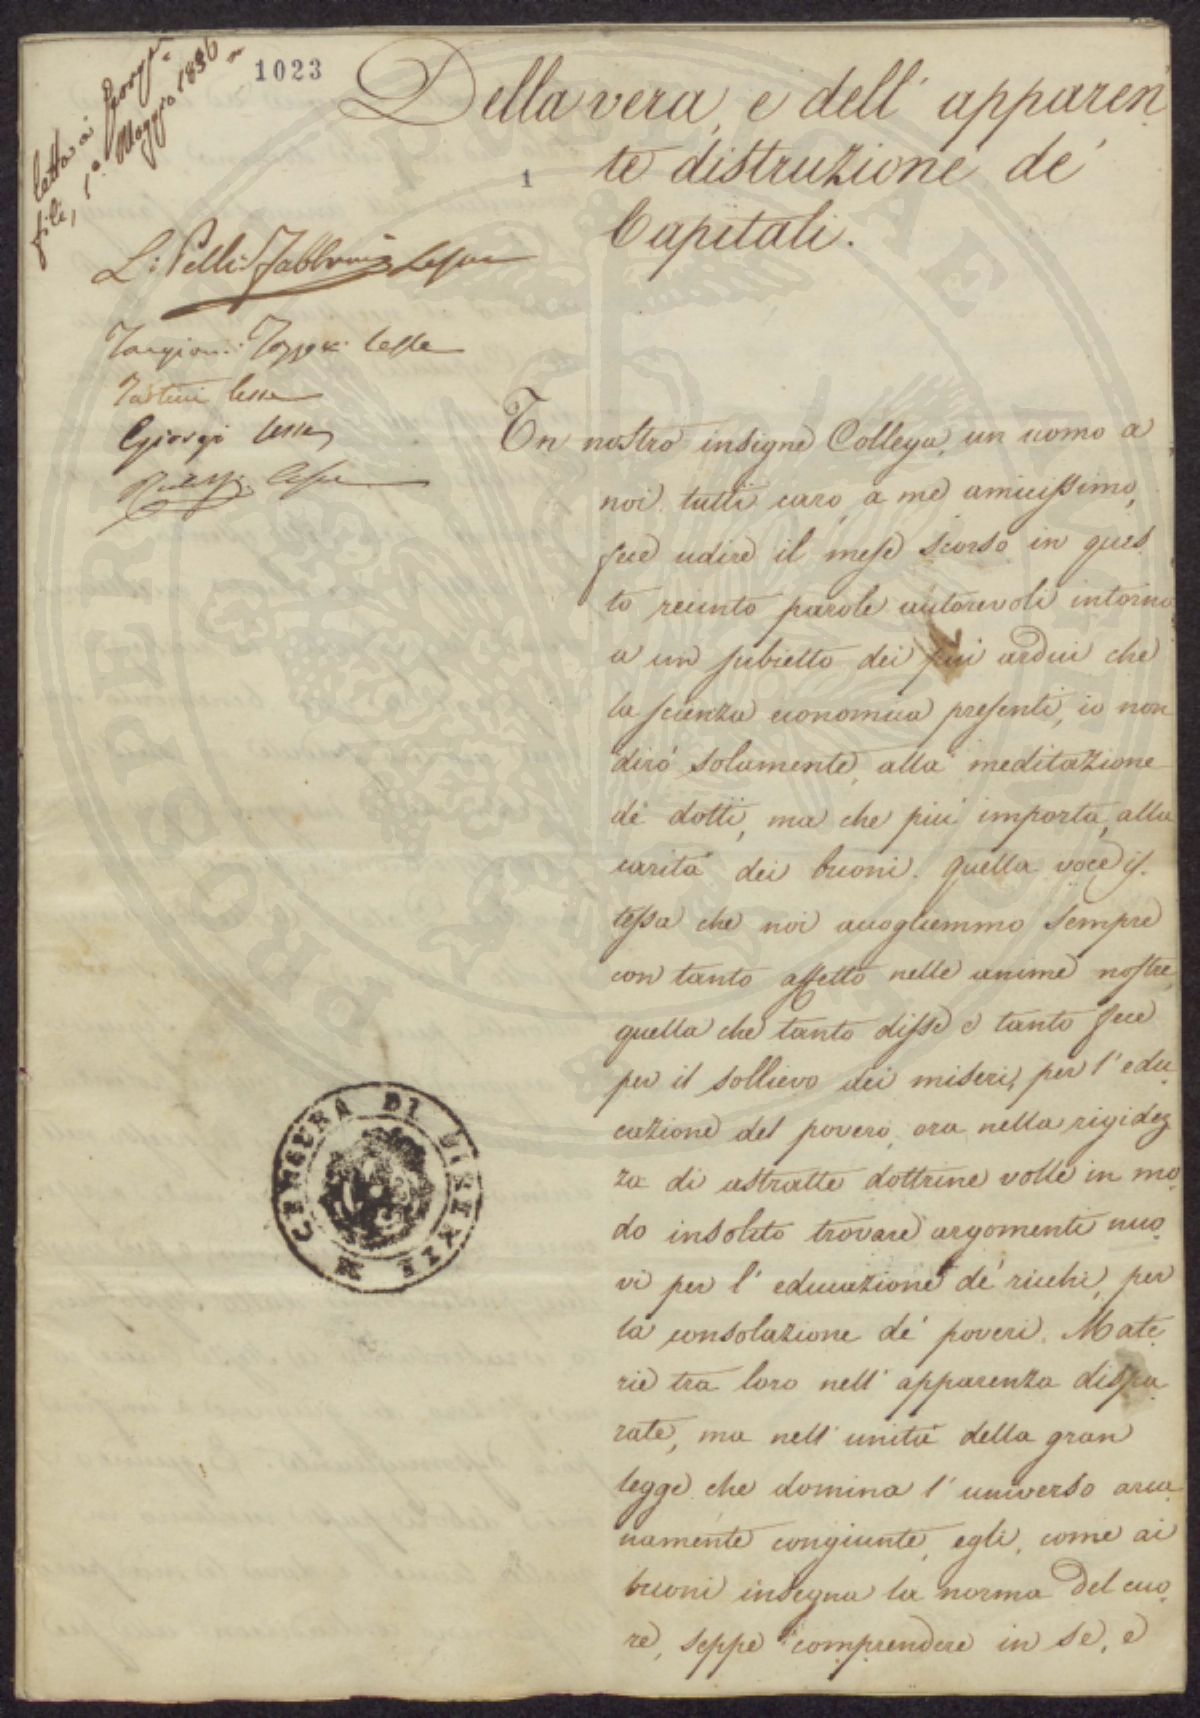 letta ai Georgo=
fili, 1.º Maggio 1836
1023
Della vera, e dell' apparen
te distruzione de'
Capitali.
1
L: Pelli: Fabbroni Lesse
Targioni: Tozzetti lesse
Tartini lesse
Giorgi lesse
Ridolfi lesse
Un nostro insigne Collega, un uomo a
noi tutti caro, a me amicissimo,
fece udire il mese scorso in ques
to recinto parole autorevoli intorno
a un subietto dei piú ardui che
la scienza economica presenti, io non
diró solamente, alla meditazione
de dotti, ma che piú importa, alla
caritá dei buoni. Quella voce is.
tessa che noi accogliemmo sempre
con tanto affetto nelle anime nostre,
quella che tanto disse e tanto fece
per il sollievo dei miseri, per l' edu
cazione del povero, ora nella rigidez
za di astratte dottrine volle in mo
do insolito trovare argomenti nuo
vi per l' educazione de' ricchi, per
la consolazione de' poveri. Mate
rie tra loro nell' apparenza dispa
rate, ma nell' unitá della gran
legge che domina l' universo arca
namente congiunte, egli, come ai
buoni insegna la norma del cuo
re, seppe comprendere in se, e
CENSURA DI FIRENZE
PROSPERITATI PUBLICAE AUGENDAE